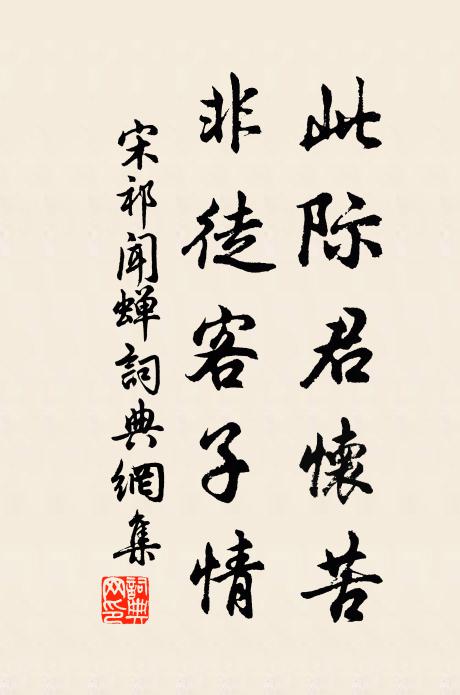 此际君懷苦
非徒客子情
宋祁闻蝉詞典網集
詞典网印